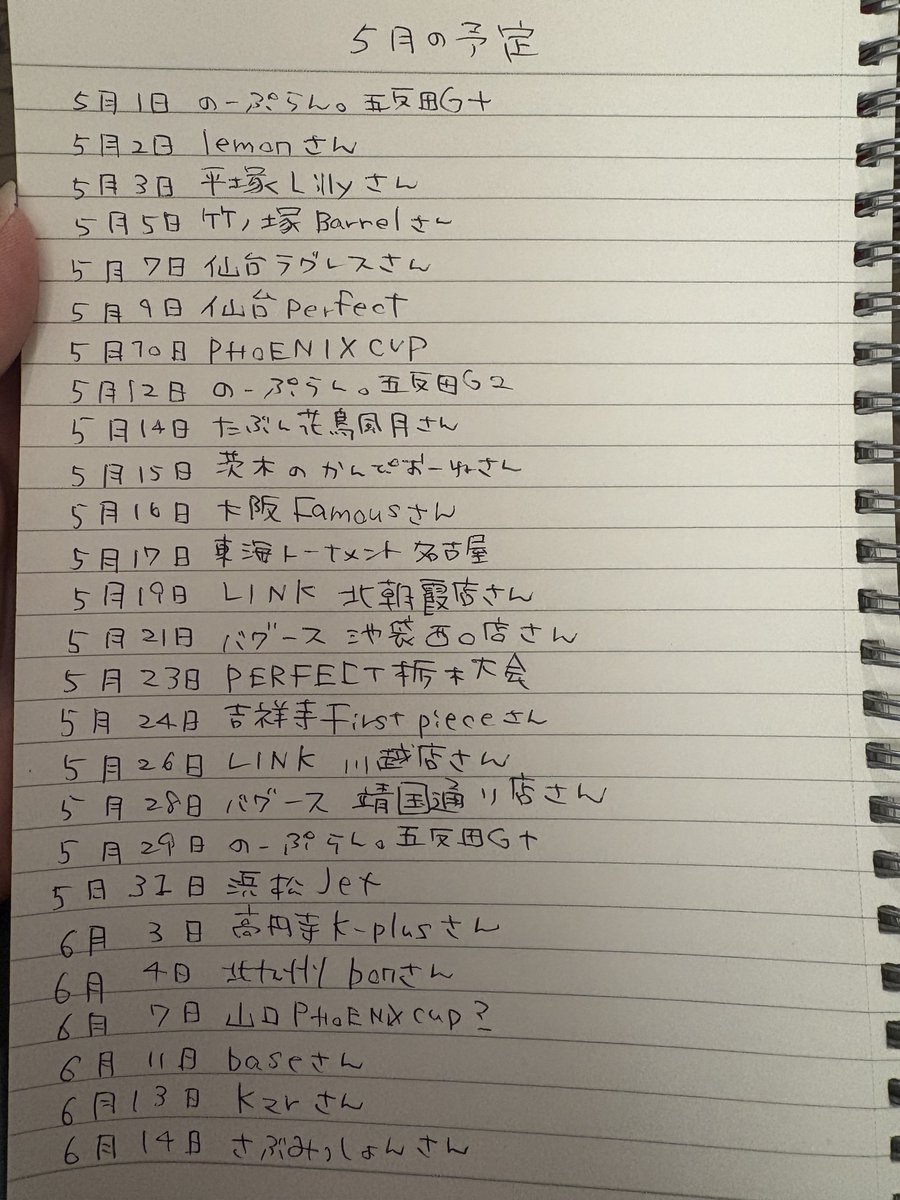 5月の予定
5月1日 のーぷらん。五反田G+
5月2日 lemonさん
5月3日 平塚Lillyさん
5月5日 竹ノ塚Barrelさん
5月7日 仙台ラグレスさん
5月9日 仙台perfect
5月10日 PHOENIXCUP
5月12日 のーぷらん。五反田G2
5月14日 たぶん花鳥風月さん
5月15日 茨木のかんぴおーねさん
5月16日 大阪Famousさん
5月17日 東海トーナメント名古屋
5月19日 LINK 北朝霞店さん
5月21日 バグース 池袋西口店さん
5月23日 PERFECT栃木大会
5月24日 吉祥寺First pieceさん
5月26日 LINK 川越店さん
5月28日 バグース 靖国通り店さん
5月29日 のーぷらん。五反田G+
5月31日 浜松Jet
6月3日 高円寺K-plusさん
6月4日 北九州bonさん
6月7日 山口PHOENIXCUP?
6月11日 baseさん
6月13日 Kzrさん
6月14日 さぶみっしょんさん